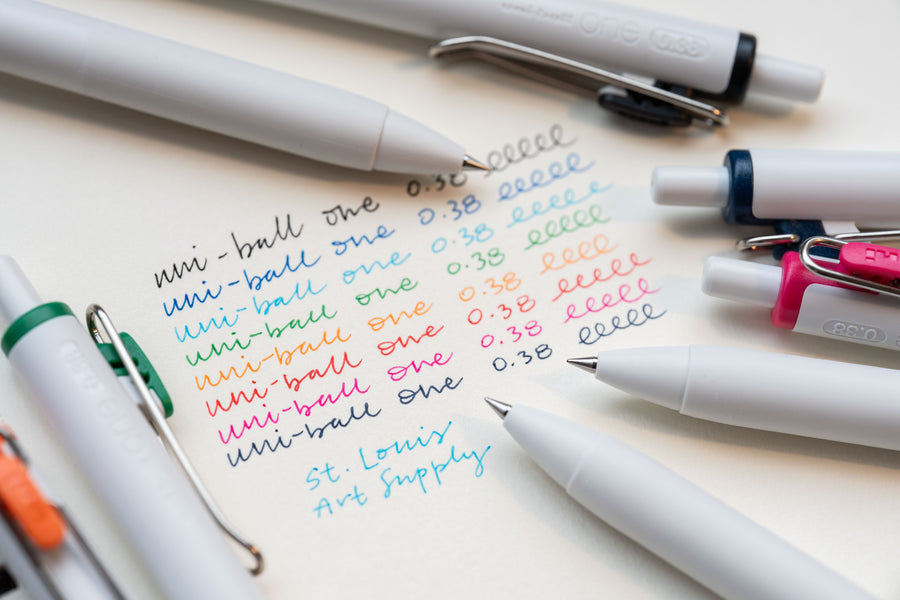 uni-ball one 0.38
uni-ball one 0.38
uni-ball one 0.38
uni-ball one 0.38
uni-ball one 0.38
uni-ball one 0.38
uni-ball one 0.38
uni-ball one 0.38
St. Louis
Art Supply
uni-ball one 0.38
0.38